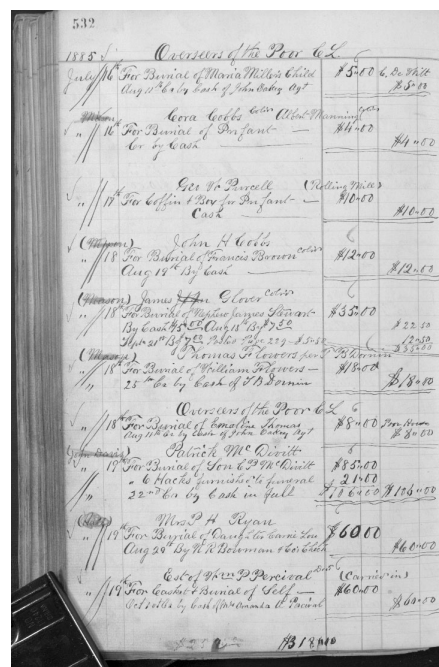 532
1885 Overseers of the Poor C L
July 16th For Burial of Maria Miller's Child $5.00 C. De Witt
Aug 11th Cr by Cash of John Oakey Agt $5.00
Cora Cobbs Colrd Albert Manning Colrd
" 16th For Burial of Infant — $4.00
Cr by Cash — $4.00
Geo W Purcell (Rolling Mill)
" 17th For Coffin & Box for Infant — $10.00
Cash — $10.00
John H Cobbs
" 18 For Burial of Francis Brown Colrd $12.00
Aug 19th By Cash — $12.00
(Mason) James Glover Colrd
" 18th For Burial of Nephew James Stewart $35.00
By Cash Aug 15th By $7.50 $22.50
Sept 21st By Page 229 12.50
$35.00
Thomas Flowers per T B Dornin
" 18th For Burial of William Flowers — $18.00
" 25th Cr by Cash of T B Dornin $18.00
Overseers of the Poor C L
" 18th For Burial of Thomas $8.00 Poor House
Aug 11th Cr by Cash of John Oakey Agt $8.00
Patrick Mc Divitt
" 19th For Burial of Son C P Mc Divitt $85.00
" " 6 Hacks furnished to funeral 21.00
" 22nd Cr by Cash in full $106.00 $106.00
Mrs P H Ryan
" 19th For Burial of Daughter Carrie Lou $60.00
Aug 29th By W R Bowman & Co's Check $60.00
Est of Wm P Percival (Carrier in)
" 19th For Casket & Burial of Self — $60.00
by Cash of Mrs Amanda Percival $60.00
$318.00